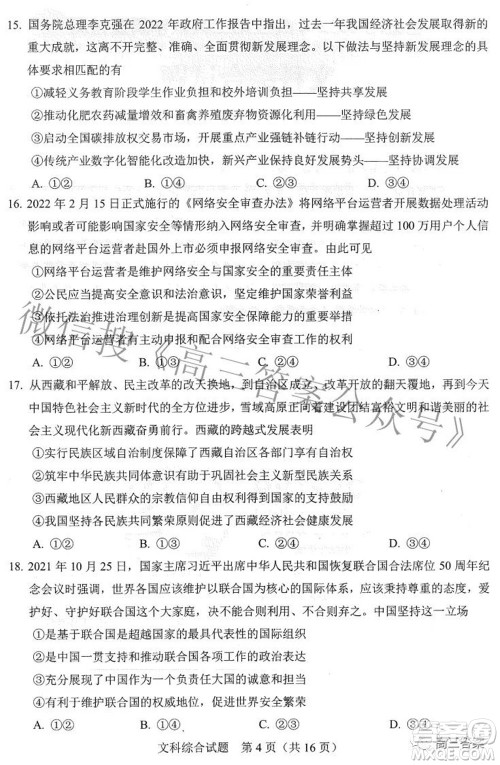 15. 国务院总理李克强在 2022 年政府工作报告中指出，过去一年我国经济社会发展取得新的
重大成就，贯彻新发展理念。以下做法与坚持新发展理念的具
体要求相匹配的有
①减轻义务教育阶段学生作业负担和校外培训负担——坚持共享发展
②推动化肥农药减量增效和畜禽养殖废弃物资源化利用——坚持绿色发展
③启动全国碳排放权交易市场，重点产业强链补链——坚持创新发展
④传统产业数字化智能化，新兴产业保持良好发展势头——坚持协调发展
A. ①② B. ①③ C. ②④ D. ③④
16. 2022 年 2 月 15 日正式施行的《网络安全审查办法》将网络平台运营者开展数据处理活动
影响或者可能影响国家安全等情形纳入网络安全审查，并明确掌握超过 100 万用户个人信
息的网络平台运营者赴国外上市必须申报网络安全审查。由此可见
①网络平台运营者是维护网络安全与国家安全的重要责任主体
②公民应当提高安全意识和法治意识，坚决维护国家安全荣誉利益
③依托法治推进治理引领是维护国家安全能力的重要举措
④网络平台运营者有主动申报和配合网络安全审查工作的权利
A. ①② B. ①③ C. ②④ D. ③④
17. 从西藏和平解放、民主改革的改天换地，到自治区成立、改革开放的翻天覆地，再到今天
中国特色社会主义新时代的全方位进步，雪域高原正向着建设团结富裕文明和谐美丽的社
会主义现代化新西藏奋勇前行。西藏的跨越式发展表明
①实行民族区域自治制度有力促进了西藏发展进步
②筑牢中华民族共同体意识有助于巩固社会主义新型民族关系
③西藏地区人民群众的宗教信仰自由权利得到了有力保障
④坚持各民族共同繁荣原则促进了西藏经济社会健康发展
A. ①② B. ①④ C. ②③ D. ③④
18. 2021 年 10 月 25 日，国家主席习近平出席中华人民共和国恢复联合国合法席位 50 周年纪
念会议时强调，世界各国应该维护以联合国为核心的国际体系，应该秉持天下一家理念，爱
护好、守护好联合国这个大家庭，决不能合则利用、不合则弃之。中国坚持这一立场
①是基于联合国是超越国家的最具代表性的国际组织
②是中国一贯支持和推动联合国各项工作的政治表达
③充分展现了中国主持国际公平正义的大国担当
④有利于维护联合国的权威地位，促进世界安全繁荣
A. ①② B. ①③ C. ②④ D. ③④
文科综合试题 第 4 页（共 16 页）
微信搜《高三答案公众号》
高三答案